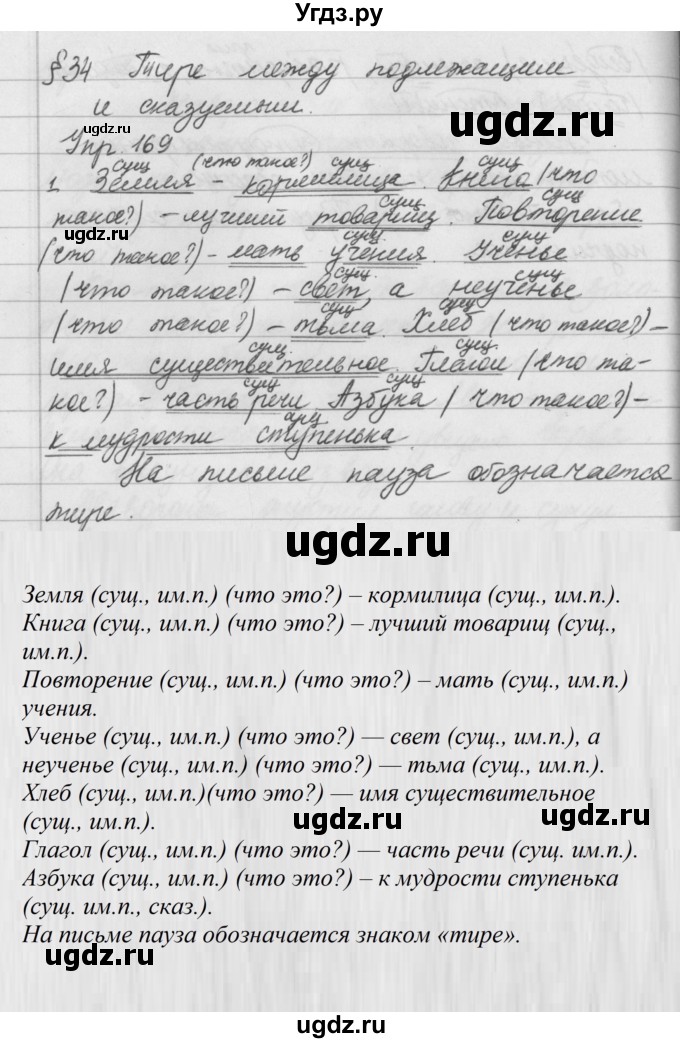 Угдз.ру
§34 Тире между подлежащим
и сказуемым.
Упр. 169
сущ (что такое?) сущ сущ
1. Земля - кормилица. Книга (что
сущ сущ
такое?) - лучший товарищ. Повторение
сущ сущ
(что такое?) - мать учения. Ученье
сущ сущ
(что такое?) - свет, а неученье
сущ сущ
(что такое?) - тьма. Хлеб (что такое?) -
сущ. сущ.
имя существительное. Глагол (что та-
сущ сущ
кое?) - часть речи. Азбука (что такое?) -
к мудрости ступенька.
На письме пауза обозначается
тире.
ugdz.ru
ugdz.ru
ugdz.ru
ugdz.ru
ugdz.ru
ugdz.ru
Земля (сущ., им.п.) (что это?) – кормилица (сущ., им.п.).
Книга (сущ., им.п.) (что это?) – лучший товарищ (сущ.,
им.п.).
Повторение (сущ., им.п.) (что это?) – мать (сущ., им.п.)
учения.
Ученье (сущ., им.п.) (что это?) — свет (сущ., им.п.), а
неученье (сущ., им.п.) (что это?) — тьма (сущ., им.п.).
Хлеб (сущ., им.п.)(что это?) — имя существительное
(сущ., им.п.).
Глагол (сущ., им.п.) (что это?) — часть речи (сущ. им.п.).
Азбука (сущ., им.п.) (что это?) – к мудрости ступенька
(сущ. им.п., сказ.).
На письме пауза обозначается знаком «тире».
ugdz.ru
ugdz.ru
ugdz.ru
ugdz.ru
ugdz.ru